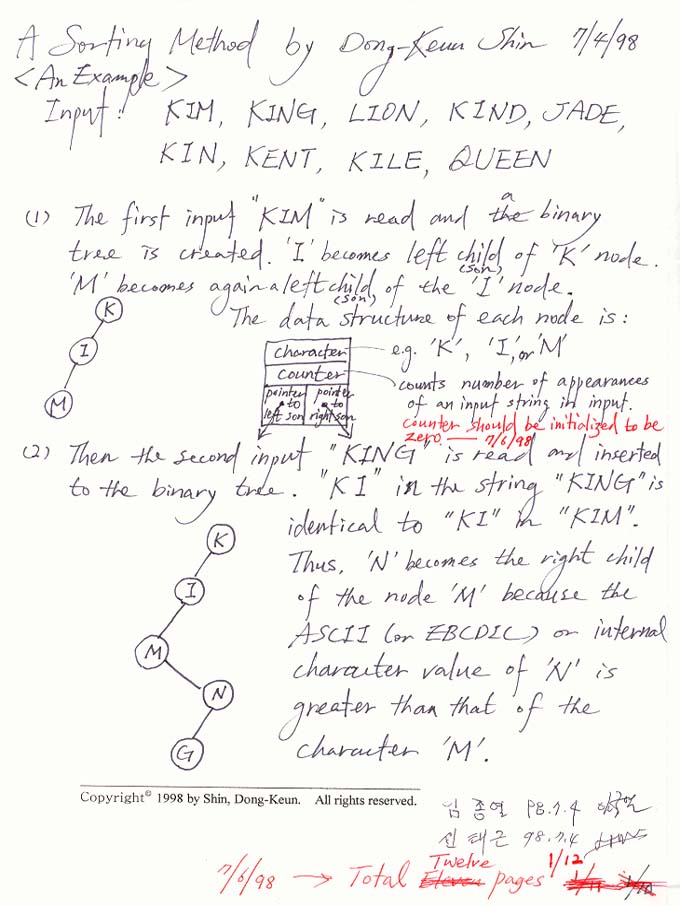 A Sorting Method by Dong-Keun Shin 7/4/98
<An Example>
Input: KIM, KING, LION, KIND, JADE,
KIN, KENT, KILE, QUEEN
(1) The first input "KIM" is read and the a binary
tree is created. 'I' becomes left child (son) of 'K' node.
'M' becomes again a left child (son) of the 'I' node.
The data structure of each node is:
K
I
M
character
e.g. 'K', 'I', or 'M'
counter
counts number of appearances
of an input string in input.
pointer to left son
pointer to right son
counter should be initialized to be
zero. — 7/6/98
(2) Then the second input "KING" is read and inserted
to the binary tree. "KI" in the string "KING" is
identical to "KI" in "KIM".
Thus, 'N' becomes the right child
of the node 'M' because the
ASCII (or EBCDIC) or internal
character value of 'N' is
greater than that of the
character 'M'.
K
I
M
N
G
Copyright© 1998 by Shin, Dong-Keun. All rights reserved.
임종열 98.7.4
신태근 98.7.4
7/6/98 → Total Eleven Twelve pages 1/12